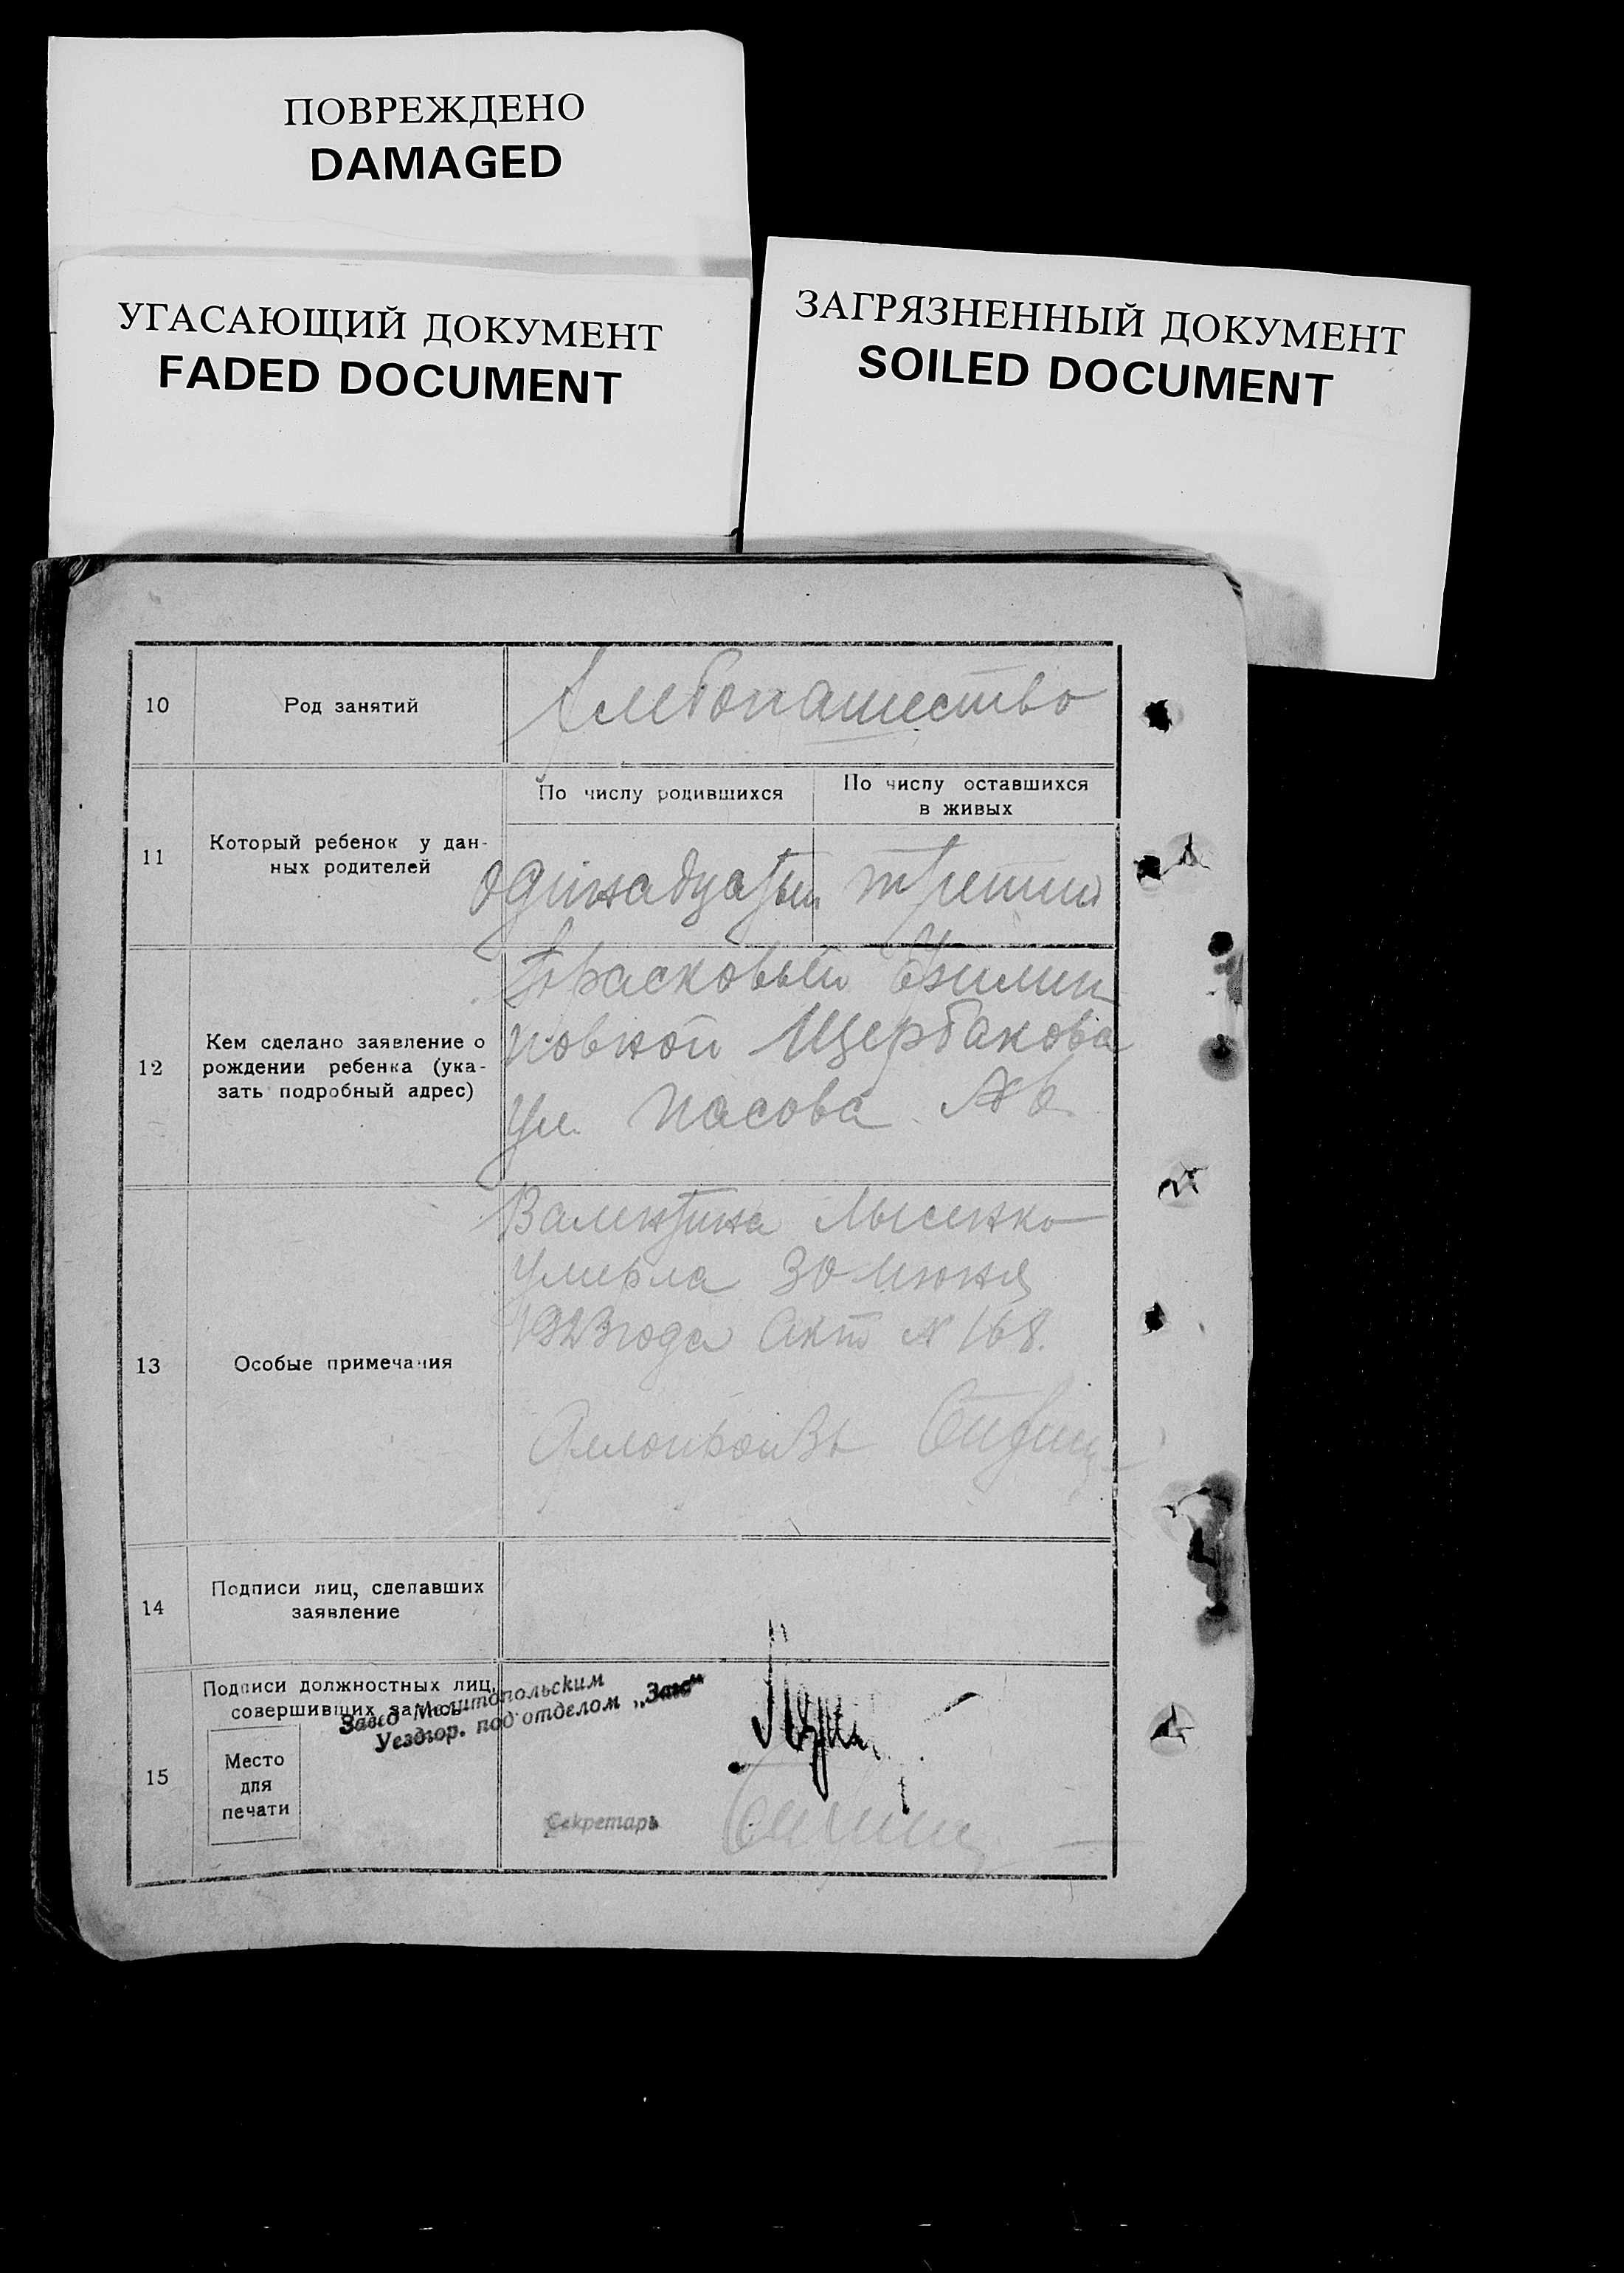 ПОВРЕЖДЕНО
DAMAGED
УГАСАЮЩИЙ ДОКУМЕНТ
FADED DOCUMENT
ЗАГРЯЗНЕННЫЙ ДОКУМЕНТ
SOILED DOCUMENT
10
Род занятий
Хлебопашество
11
Который ребенок у дан-
ных родителей
По числу родившихся
По числу оставшихся
в живых
одинадцатый
третий
12
Кем сделано заявление о
рождении ребенка (ука-
зать подробный адрес)
Прасковьей Филип
повной Щербакова
ул.
13
Особые примечания
Валентина Лысенко
умерла 30 июня
1923 года Акт N 168.
14
Подписи лиц, сделавших
заявление
15
Подписи должностных лиц,
совершивших запись
Завед Мелитопольским
Уездгор. подотделом „Загс"
Место
для
печати
Секретарь